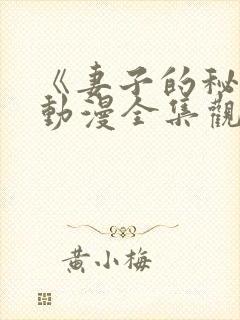 《妻子的秘
動漫全集觀
黃小梅